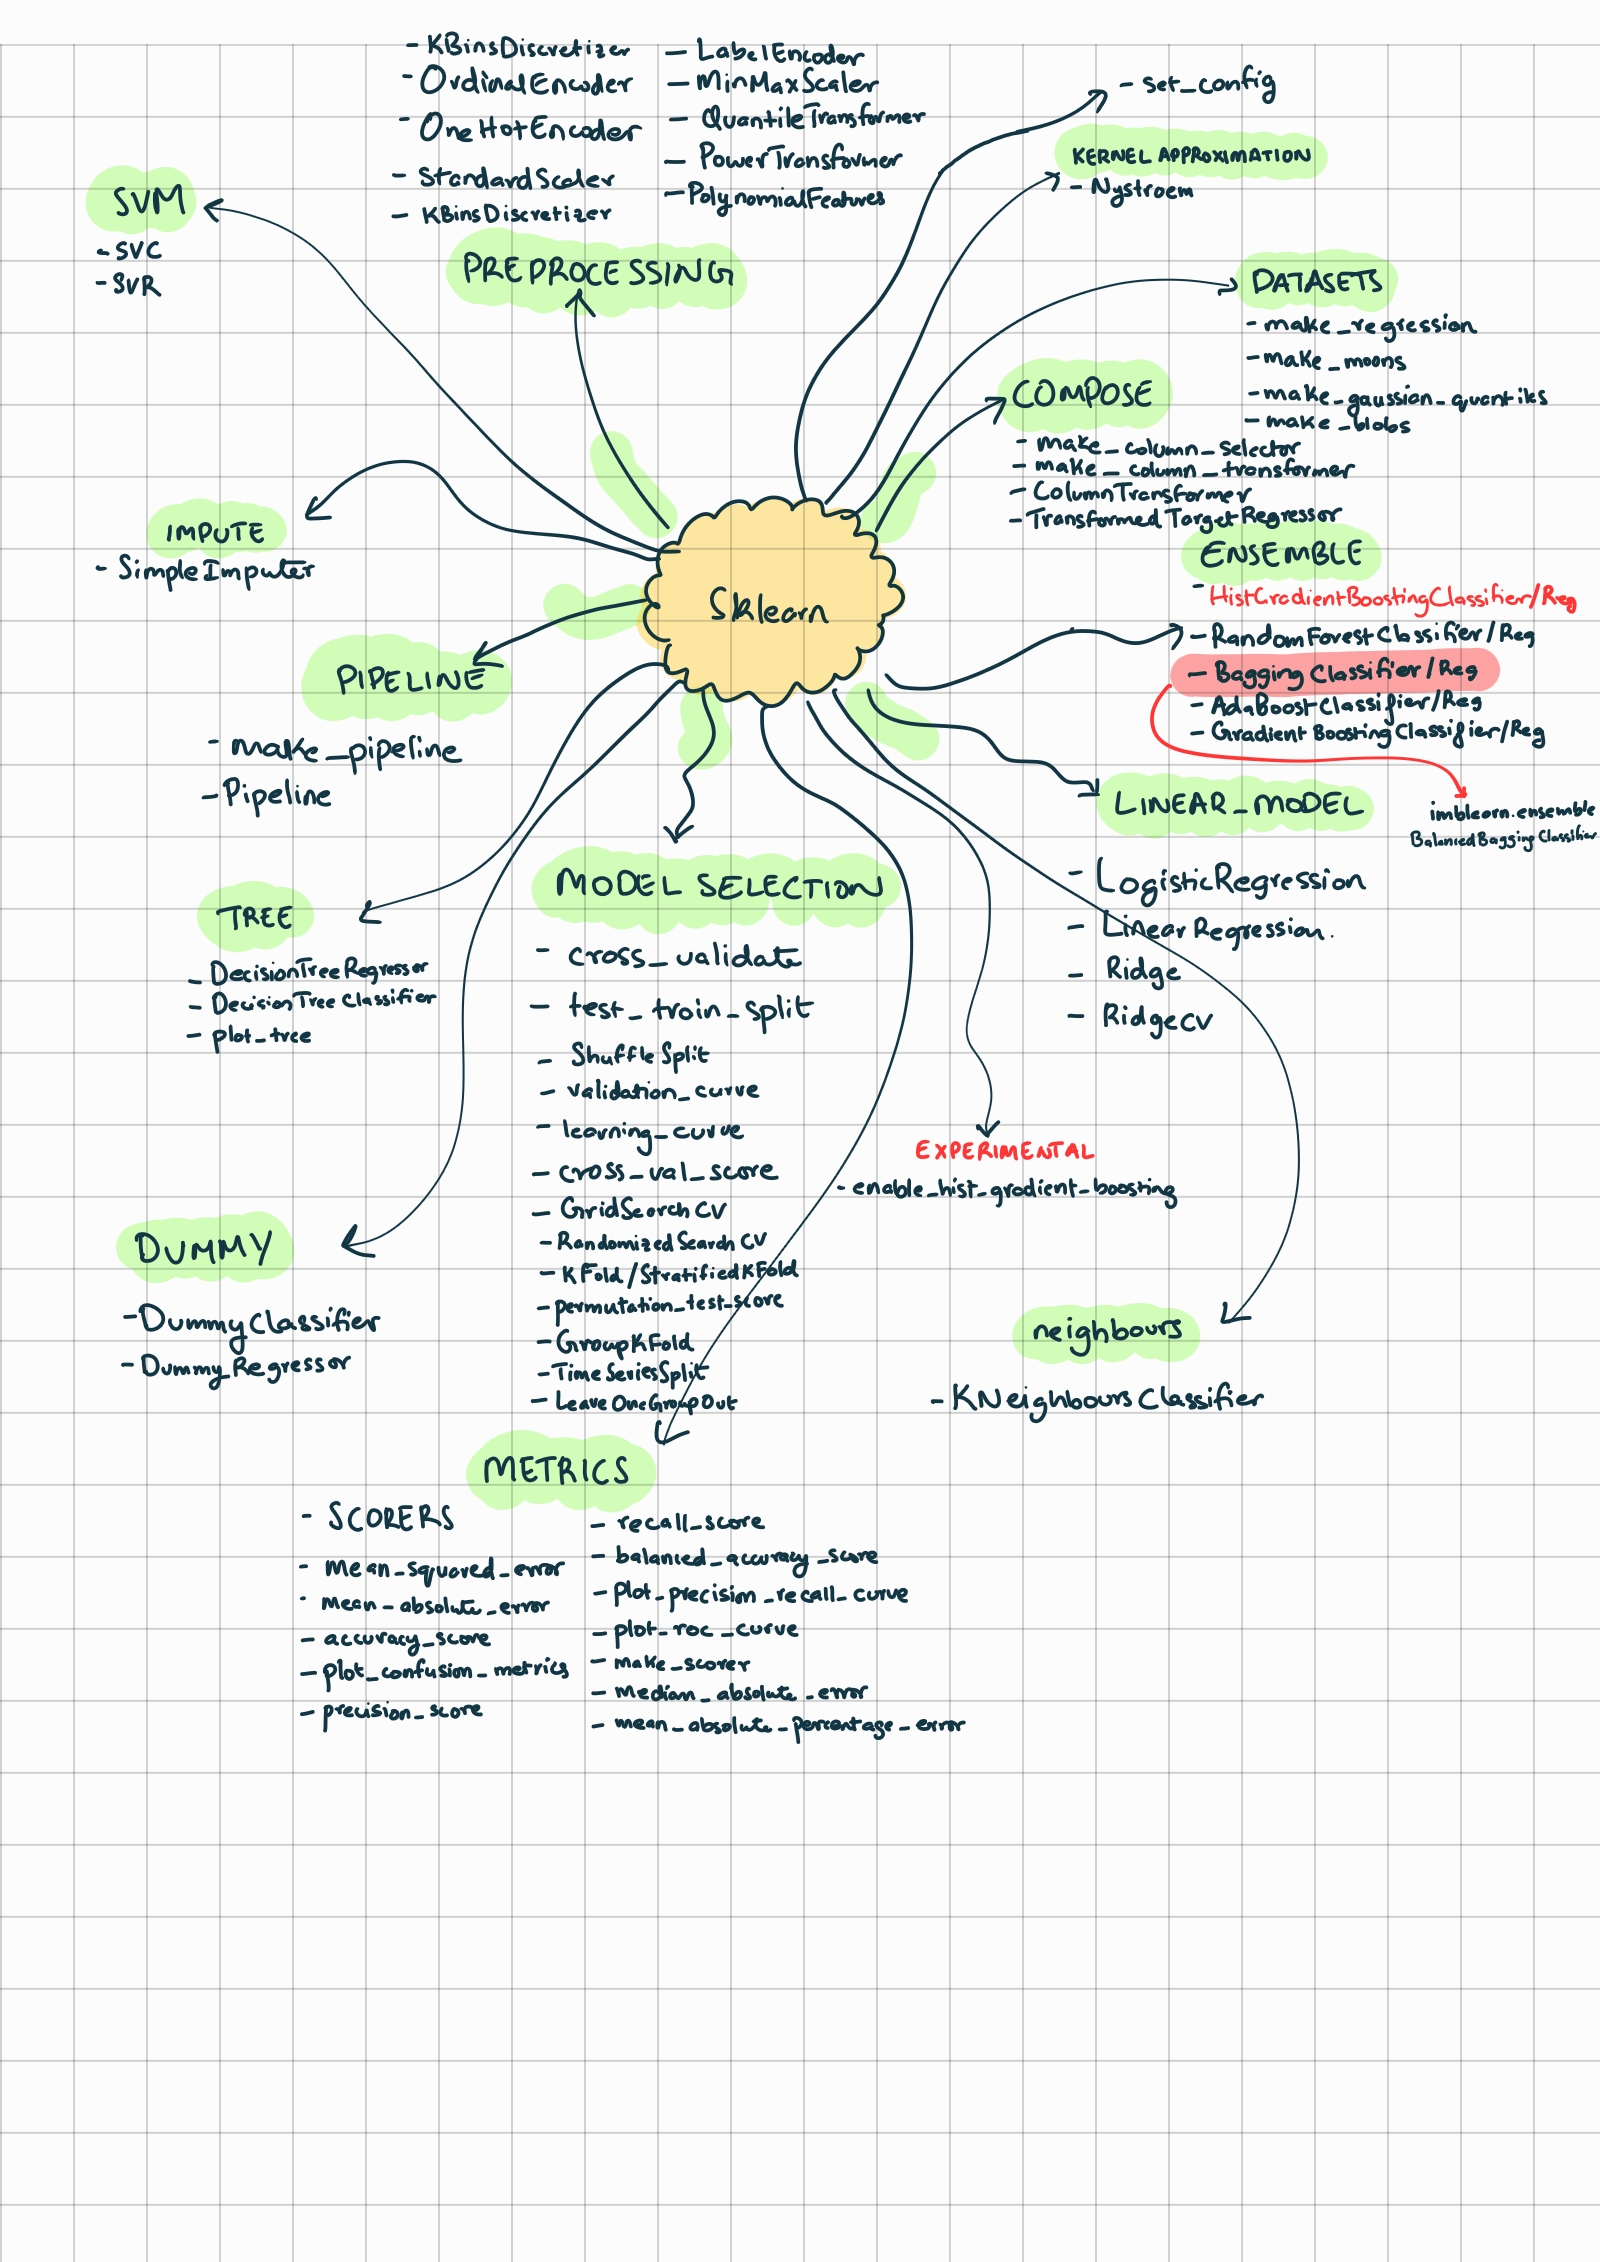 - KBinsDiscretizer
- OrdinalEncoder
- OneHotEncoder
- StandardScaler
- KBinsDiscretizer
- LabelEncoder
- MinMaxScaler
- QuantileTransformer
- PowerTransformer
- PolynomialFeatures
PREPROCESSING
- set_config
KERNEL APPROXIMATION
- Nystroem
SVM
- SVC
- SVR
DATASETS
- make_regression
- make_moons
- make_gaussian_quantiles
- make_blobs
COMPOSE
- make_column_selector
- make_column_transformer
- ColumnTransformer
- TransformedTargetRegressor
IMPUTE
- SimpleImputer
Sklearn
ENSEMBLE
- HistGradientBoostingClassifier/Reg
- RandomForestClassifier/Reg
- Bagging Classifier/Reg
- AdaBoostClassifier/Reg
- Gradient Boosting Classifier/Reg
imblearn.ensemble
BalancedBaggingClassifier
PIPELINE
- make_pipeline
- Pipeline
LINEAR_MODEL
- LogisticRegression
- LinearRegression.
- Ridge
- RidgeCV
TREE
- DecisionTreeRegressor
- DecisionTreeClassifier
- plot_tree
MODEL SELECTION
- cross_validate
- test_train_split
- ShuffleSplit
- validation_curve
- learning_curve
- cross_val_score
- GridSearchCV
- RandomizedSearchCV
- KFold/StratifiedKFold
- permutation_test_score
- GroupKFold
- TimeSeriesSplit
- LeaveOneGroupOut
EXPERIMENTAL
- enable_hist_gradient_boosting
DUMMY
- DummyClassifier
- Dummy_Regressor
neighbours
- KNeighboursClassifier
METRICS
- SCORERS
- Mean_squared_error
- mean_absolute_error
- accuracy_score
- plot_confusion_metrics
- precision_score
- recall_score
- balanced_accuracy_score
- plot_precision_recall_curve
- plot_roc_curve
- make_scorer
- median_absolute_error
- mean_absolute_percentage_error